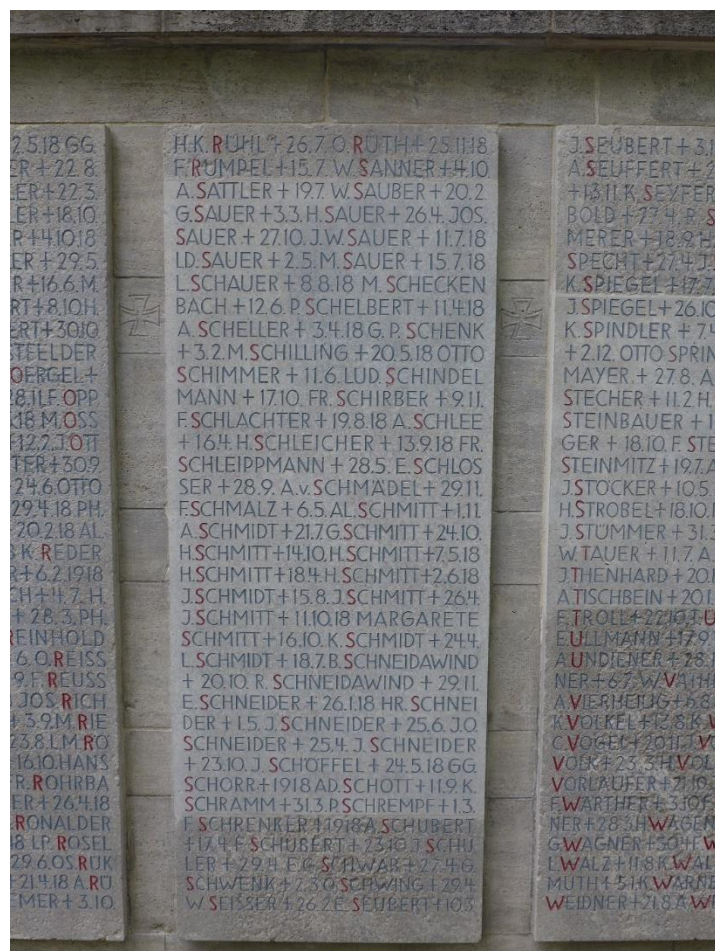 2.5.18 GG.
ER + 22.8.
ER + 22.3.
ER + 18.10.
R + 4.10.18
ER + 29.5.
R + 16.6. M.
RT + 8.10 H.
ERT + 30.10
STEELDER
OERGEL +
8.11. F. OPP
K 18 M. OSS
+ 12.2. J. OTT
TER + 30.9.
24.6. OTTO
29.4.18 PH.
20.2.18 AL.
K. REDER
R + 6.2.1918
CH + 4.7. H.
+ 28.3. PH.
REINHOLD
6. O. REISS
9. F. REUSS
JOS RICH
+ 3.9. M. RIE
23.8. L. M. RO
16.10. HANS
R. ROHRBA
ER + 26.4.18
RONALDER
18 L. P. ROSEL
29.6. OS. RÜK
+ 21.4.18 A. RÜ
EMER + 3.10.
H. K. RÜHL + 26.7. O. RÜTH + 25.11.18
F. RUMPEL + 15.7. W. SANNER + 4.10
A. SATTLER + 19.7. W. SAUBER + 20.2
G. SAUER + 3.3. H. SAUER + 26.4. JOS.
SAUER + 27.10. J. W. SAUER + 11.7.18
LD. SAUER + 2.5. M. SAUER + 15.7.18
L. SCHAUER + 8.8.18 M. SCHECKEN
BACH + 12.6. P. SCHELBERT + 11.4.18
A. SCHELLER + 3.4.18 G. P. SCHENK
+ 3.2. M. SCHILLING + 20.5.18 OTTO
SCHIMMER + 11.6. LUD. SCHINDEL
MANN + 17.10. FR. SCHIRBER + 9.11.
F. SCHLACHTER + 19.8.18 A. SCHLEE
+ 16.4. H. SCHLEICHER + 13.9.18 FR.
SCHLEIPPMANN + 28.5. E. SCHLOS
SER + 28.9. A. v. SCHMÄDEL + 29.11.
F. SCHMALZ + 6.5. AL. SCHMITT + 1.11.
A. SCHMIDT + 21.7. G. SCHMITT + 24.10.
H. SCHMITT + 14.10. H. SCHMITT + 7.5.18
H. SCHMITT + 18.4. H. SCHMITT + 2.6.18
J. SCHMIDT + 15.8. J. SCHMITT + 26.4.
J. SCHMITT + 11.10.18 MARGARETE
SCHMITT + 16.10. K. SCHMIDT + 24.4.
L. SCHMIDT + 18.7. B. SCHNEIDAWIND
+ 20.10. R. SCHNEIDAWIND + 29.11.
E. SCHNEIDER + 26.1.18 HR. SCHNEI
DER + 1.5. J. SCHNEIDER + 25.6. J. O.
SCHNEIDER + 25.4. J. SCHNEIDER
+ 23.10. J. SCHÖFFEL + 24.5.18 GG.
SCHORR + 1918 AD. SCHOTT + 11.9. K.
SCHRAMM + 31.3. P. SCHREMPF + 1.3.
F. SCHRENKER + 1918 A. SCHUBERT
+ 17.4. F. SCHUBERT + 23.10. J. SCHU
LER + 29.4. E. G. SCHWAB + 27.4. G.
SCHWENK + 2.3. O. SCHWING + 29.4.
W. SEISSER + 26.2. E. SEUBERT + 10.3.
J. SEUBERT + 3.1
A. SEUFFERT + 2
+ 13.11. K. SEYFER
BOLD + 27.4. R. S
MERER + 18.9. H
SPECHT + 27.4. J.
K. SPIEGEL + 17.7.
J. SPIEGEL + 26.10
K. SPINDLER + 7.4
+ 2.12. OTTO SPRIN
MAYER. + 27.8. A.
STECHER + 11.2 H.
STEINBAUER + 1
GER + 18.10. F. STE
STEINMITZ + 19.7. A
J. STÖCKER + 10.5.
H. STROBEL + 18.10.1
J. STÜMMER + 31.3
W. TAUER + 11.7. A
J. THENHARD + 20.1
A. TISCHBEIN + 20.1
F. TROLL + 22.10. J. U
E. ULLMANN + 17.9
A. UNDIENER + 28.1
NER + 6.7. W. VATH
A. VIERHEILIG + 6.8
K. VÖLKEL + 13.8. K. W
C. VOGEL + 20.11. J. VO
VOLK + 23.3. H. VOL
VORLAUFER + 21.10.
F. WARTHER + 3.10. F
NER + 28.3. H. WAGEN
G. WAGNER + 30.4. W
L. WALZ + 11.8. K. WAL
MUTH + 5.1. K. WARNE
WEIDNER + 21.8. A. WE